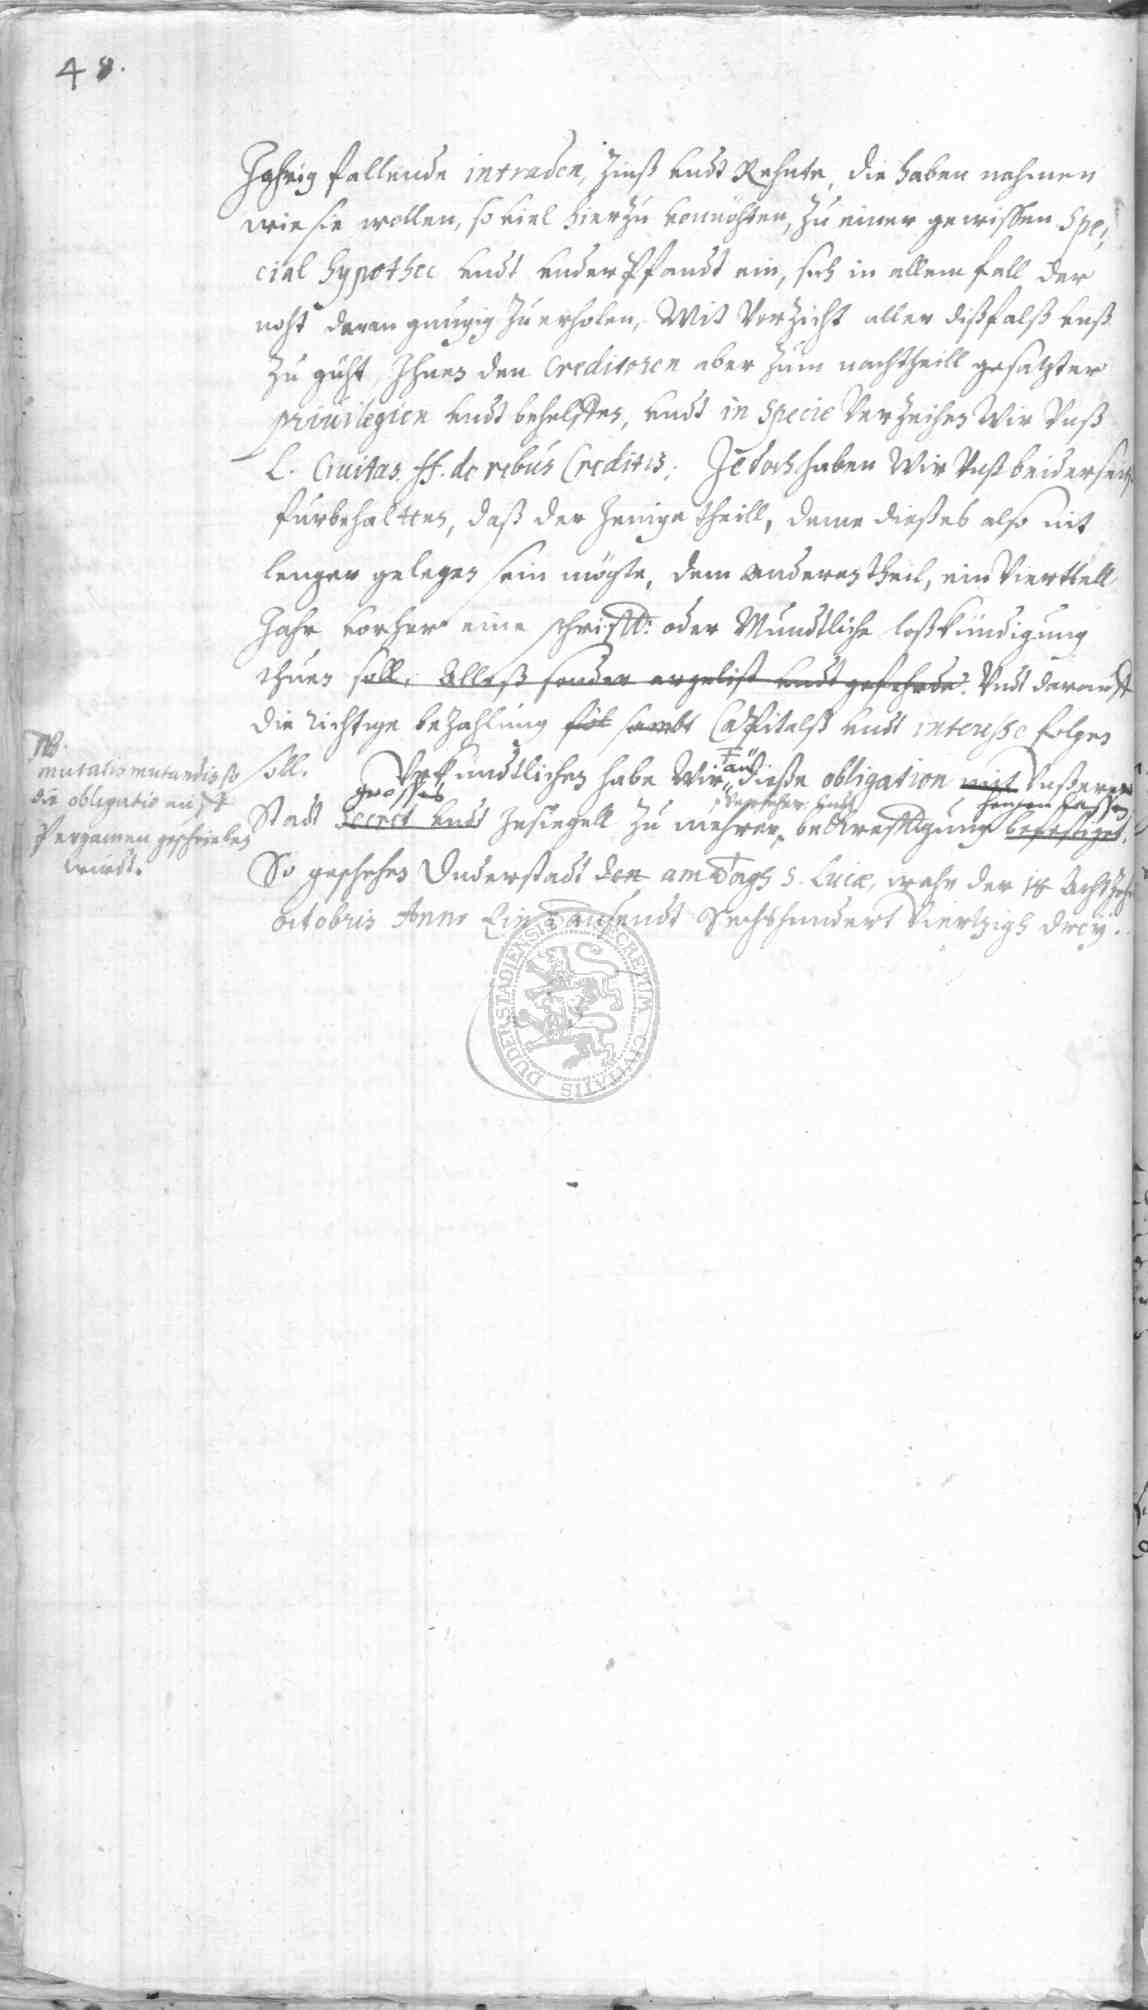 48.
Jährig fallende intraden, Zinß undt Rehnte, die haben nahmen
wie sie wollen, so viel hierzu vonnöhten, zu einer gewissen Spe,
cial hypothec undt underpfandt ein, sich in allem fall der
noht daran zuerholen, Mit Verzicht aller dißfalß unß
zu guht, Ihnen den Creditoren aber zum nachtheill gesatzter
privilegien undt behelffen, undt in specie Verzeihen Wir Unß
L. Civitas ff. de rebus Creditis. Jedoch haben Wir Unß beiderseits
fürbehaltten, daß der Jenige theill, deme dießes also nit
lenger gelegen sein mögte, dem anderen theil, ein Vierttell
Jahr vorher eine schrifftl: oder Mundtliche loßkündigung
thuen soll, Alleß sonder argelist undt gefehrde. Undt darauff
die richtige bezahlung sambt Capitalß undt interesse folgen
soll. Uhrkundtlichen habe Wir an dieße obligation mit Unßerem
großes hengen laßen
Stadt Secret undt Insiegell zu mehrer bekrefftigung befestiget.
So geschehen Duderstadt den am Tagh S. Lucæ, wahr der 18 Achtzehn
octobris Anno Ein Tausendt Sechshundert Viertzigh drey.
NB.
mutatis mutandis so
die obligatio auff
Pergamen geschrieben
wirdt.
SECRETUM CIVITATIS DUDERSTADIENSIS